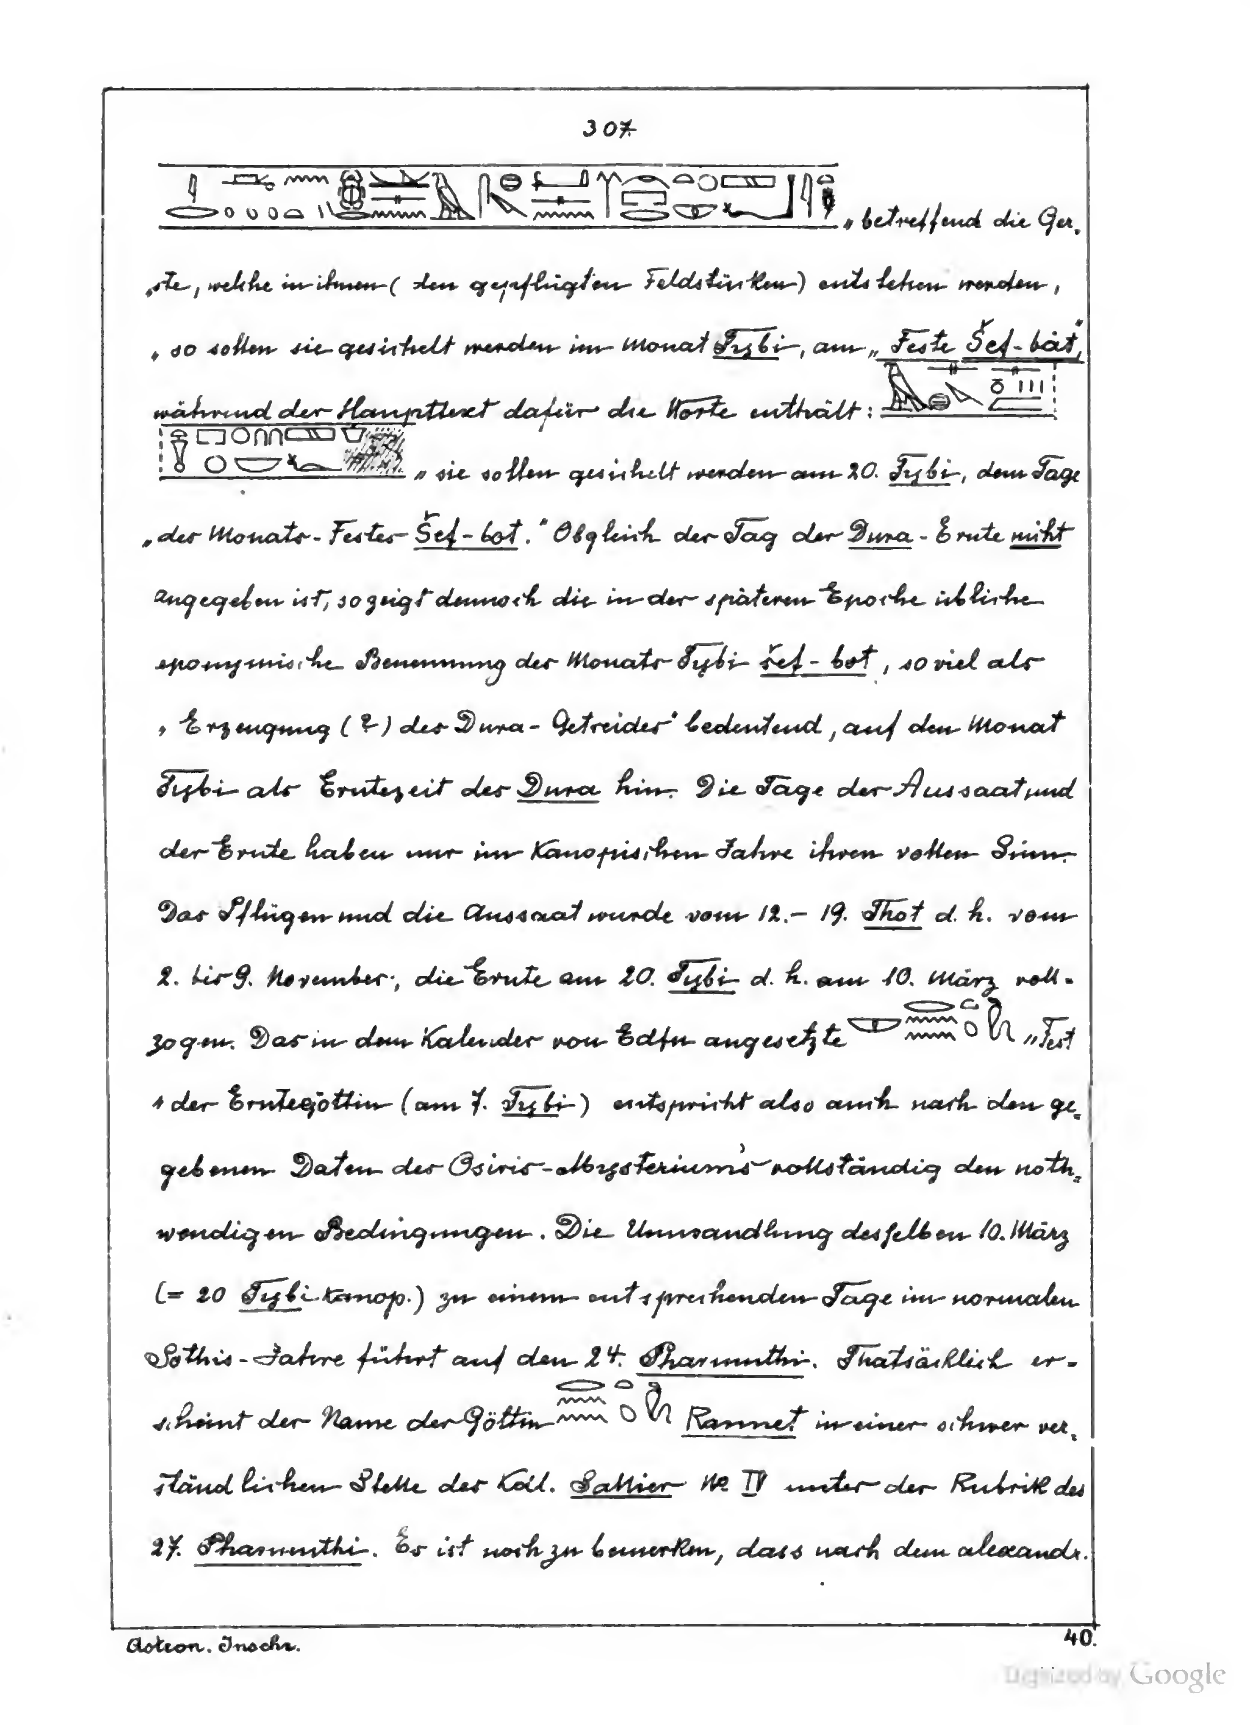 307.
„betreffend die Ger„
„ste, welche in ihnen (den gepflügten Feldstücken) entstehen werden,
„so sollen sie gesichelt werden im Monat Tybi, am „Feste Šef-bât",
während der Haupttext dafür die Worte enthält:
„sie sollen gesichelt werden am 20. Tybi, dem Tage
„des Monats-Festes Šef-bot." Obgleich der Tag der Dura-Ernte nicht
angegeben ist, so zeigt dennoch die in der späteren Epoche übliche
eponymische Benennung des Monats Tybi šef-bot, so viel als
„Erzeugung (?) des Dura-Getreides" bedeutend, auf den Monat
Tybi als Erntezeit des Dura hin. Die Tage der Aussaat und
der Ernte haben nur im Kanopischen Jahre ihren vollen Sinn.
Das Pflügen und die Aussaat wurde vom 12.–19. Thot d. h. vom
2. bis 9. November, die Ernte am 20. Tybi d. h. am 10. März voll-
zogen. Das in dem Kalender von Edfu angesetzte „Fest
„der Erntegöttin (am 7. Tybi) entspricht also auch nach den ge„
gebenen Daten des Osiris-Mysterium's vollständig den noth„
wendigen Bedingungen. Die Umwandlung desselben 10. März
(= 20 Tybi kanop.) zu einem entsprechenden Tage im normalen
Sothis-Jahre führt auf den 24. Pharmuthi. Thatsächlich er-
scheint der Name der Göttin Rannet in einer schwer ver„
ständlichen Stelle des Koll. Sallier No IV unter der Rubrik des
27. Pharmuthi. Es ist noch zu bemerken, dass nach dem alexandr.
Astron. Inschr. 40.
Digitized by Google